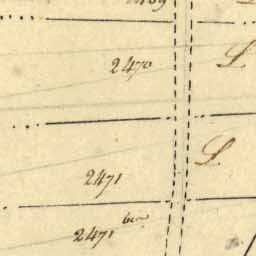 2470
L
L
2471
2471 bis